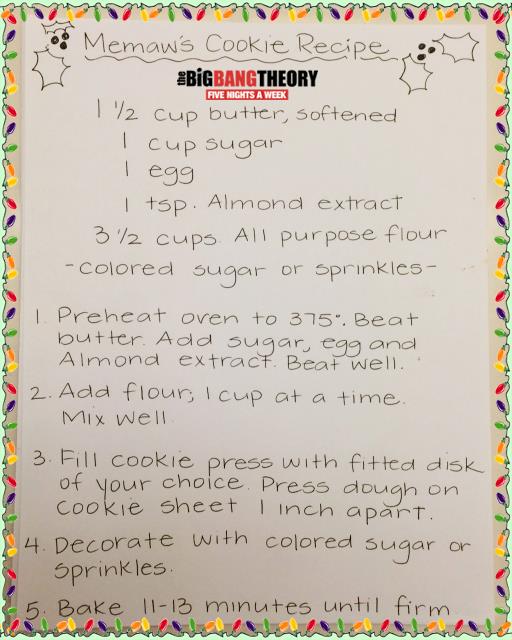 Memaw's Cookie Recipe
the BiG BANG THEORY
FIVE NIGHTS A WEEK
1 1/2 cup butter, softened
1 cup sugar
1 egg
1 tsp. Almond extract
3 1/2 cups. All purpose flour
-colored sugar or sprinkles-
1. Preheat oven to 375°. Beat
butter. Add sugar, egg and
Almond extract. Beat well.
2. Add flour, 1 cup at a time.
Mix well.
3. Fill cookie press with fitted disk
of your choice. Press dough on
cookie sheet 1 inch apart.
4. Decorate with colored sugar or
sprinkles.
5. Bake 11-13 minutes until firm